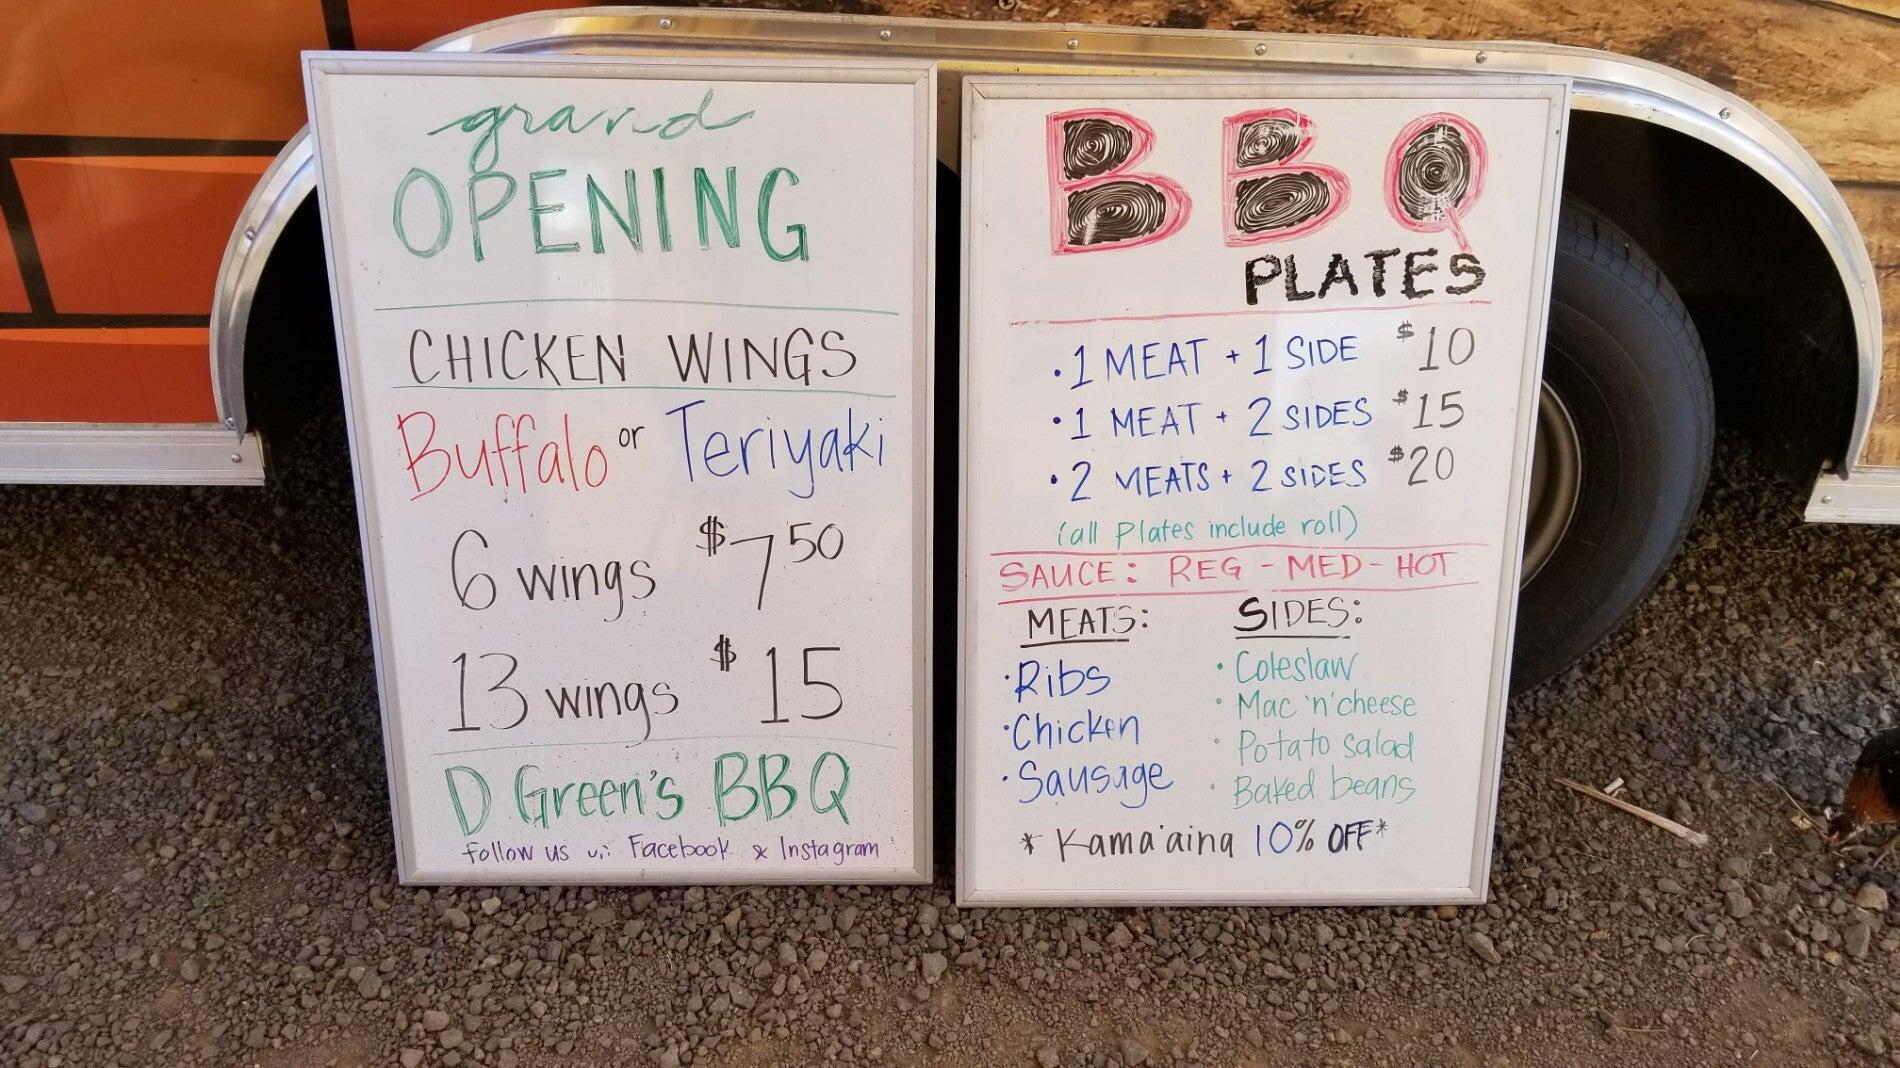 grand
OPENING
CHICKEN WINGS
Buffalo or Teriyaki
6 wings $7 50
13 wings $15
D Green's BBQ
follow us on Facebook & Instagram
BBQ
PLATES
• 1 MEAT + 1 SIDE $10
• 1 MEAT + 2 SIDES $15
• 2 MEATS + 2 SIDES $20
(all plates include roll)
SAUCE: REG - MED - HOT
MEATS:
• Ribs
• Chicken
• Sausage
SIDES:
• Coleslaw
• Mac 'n' cheese
• Potato salad
• Baked beans
* Kama'aina 10% OFF *